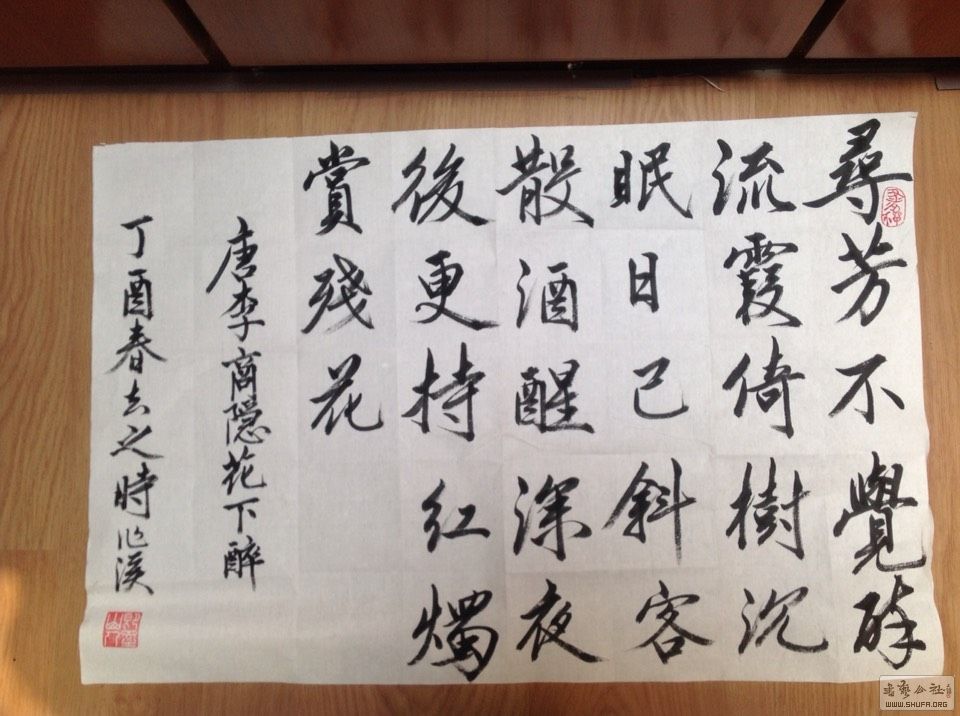 尋芳不覺醉
流霞倚樹沉
眠日已斜客
散酒醒深夜
後更持红燭
賞殘花
唐李商隱花下醉
丁酉春去之時
书艺公社
WWW.SHUFA.ORG